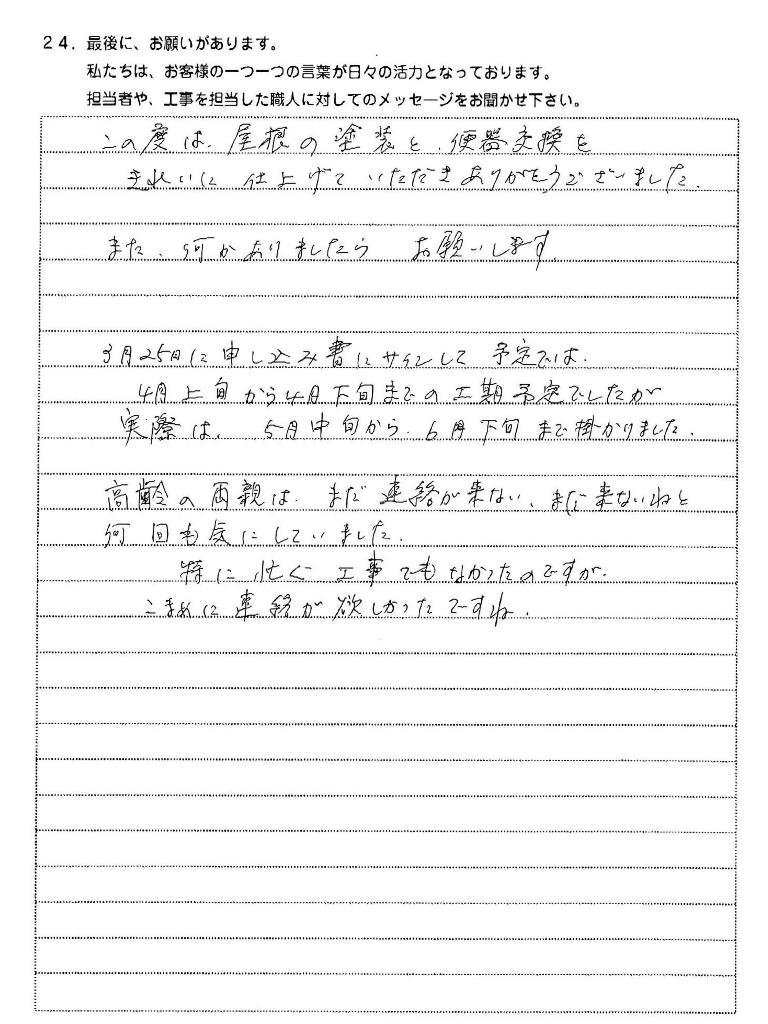 24. 最後に、お願いがあります。
私たちは、お客様の一つ一つの言葉が日々の活力となっております。
担当者や、工事を担当した職人に対してのメッセージをお聞かせ下さい。
この度は、屋根の塗装と、便器交換を
きれいに仕上げていただきありがとうございました。
また、何かありましたら お願いします。
3月25日に申し込み書にサインして 予定では、
4月上旬から4月下旬までの工期予定でしたが
実際は、5月中旬から、6月下旬まで掛かりました。
高齢の両親は、まだ連絡が来ない、まだ来ないねと
何回も気にしていました。
特に忙ぐ工事でもなかったのですが、
こまめに連絡が欲しかったですね。